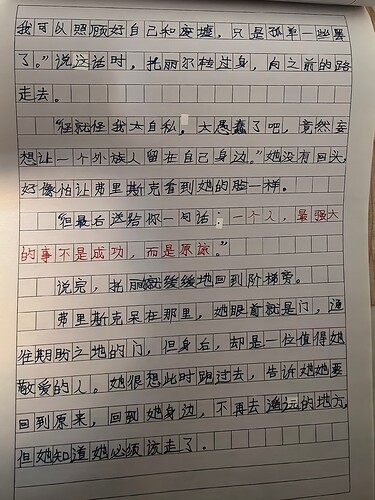 我可以照顾好自己和废墟，只是孤单一些罢
了。”说这话时，托丽尔转过身，向之前的路
走去。
“怪就怪我太自私，太愚蠢了吧，竟然妄
想让一个外族人留在自己身边。”她没有回头，
好像怕让弗里斯克看到她的脸一样。
“但最后送给你一句话：一个人，最强大
的事不是成功，而是原谅。”
说完，托丽就缓缓地回到阶梯旁。
弗里斯克呆在那里，她眼前就是门，通
往期盼之地的门，但身后，却是一位值得她
敬爱的人。她很想此时跑过去，告诉她她要
回到原来，回到她身边，不再去遥远的地方，
但她知道她必须该走了。